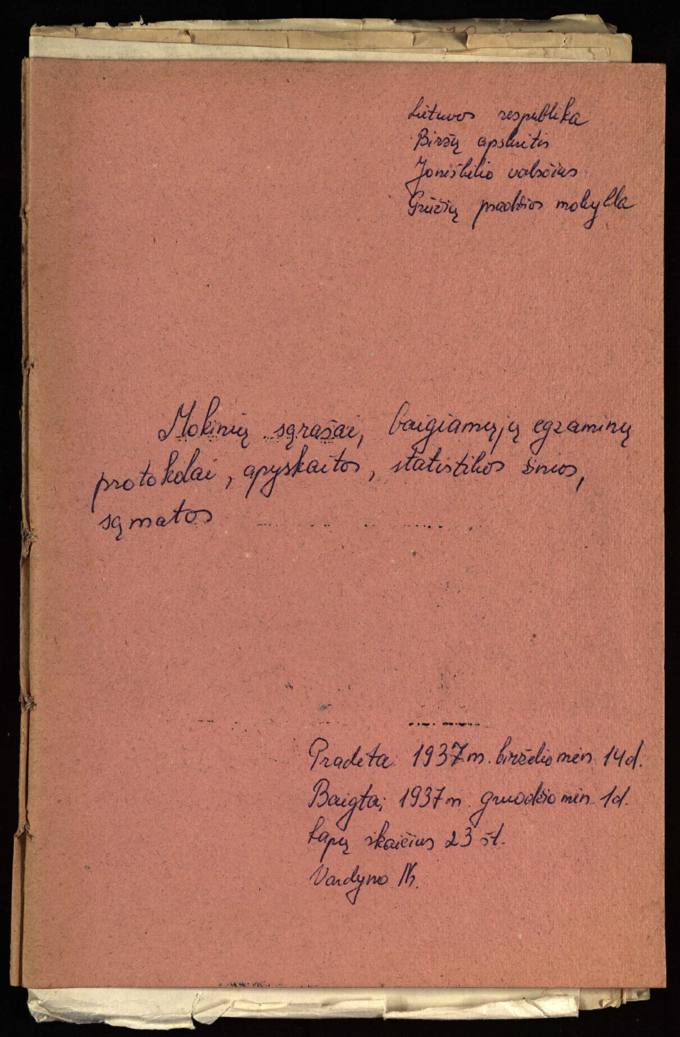 Lietuvos respublika
Biržų apskritis
Joniškėlio valsčius
Grūžių pradžios mokykla
Mokinių sąrašai, baigiamųjų egzaminų
protokolai, apyskaitos, statistikos žinios,
sąmatos
Pradėta 1937 m. birželio mėn. 14 d.
Baigta 1937 m. gruodžio mėn. 1 d.
Lapų skaičius 23 št.
Vardyno